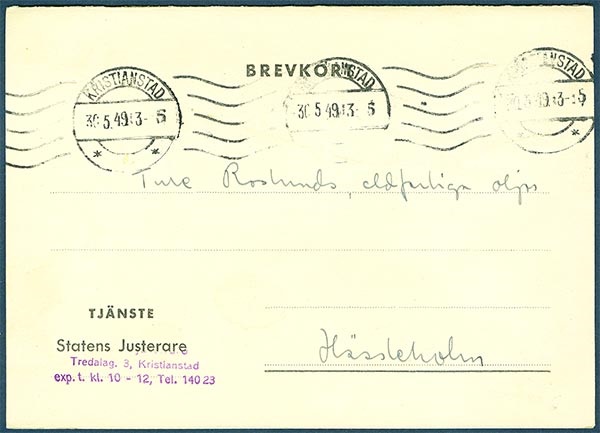 BREVKORT
KRISTIANSTAD KRISTIANSTAD KRISTIANSTAD
30.5.49 13-15 30.5.49 13-15 30.5.49 13-15
Ture Roslunds, eldfarliga oljor
TJÄNSTE
Statens Justerare
Tredalag. 3, Kristianstad
exp. t. kl. 10 - 12, Tel. 140 23
Hässleholm